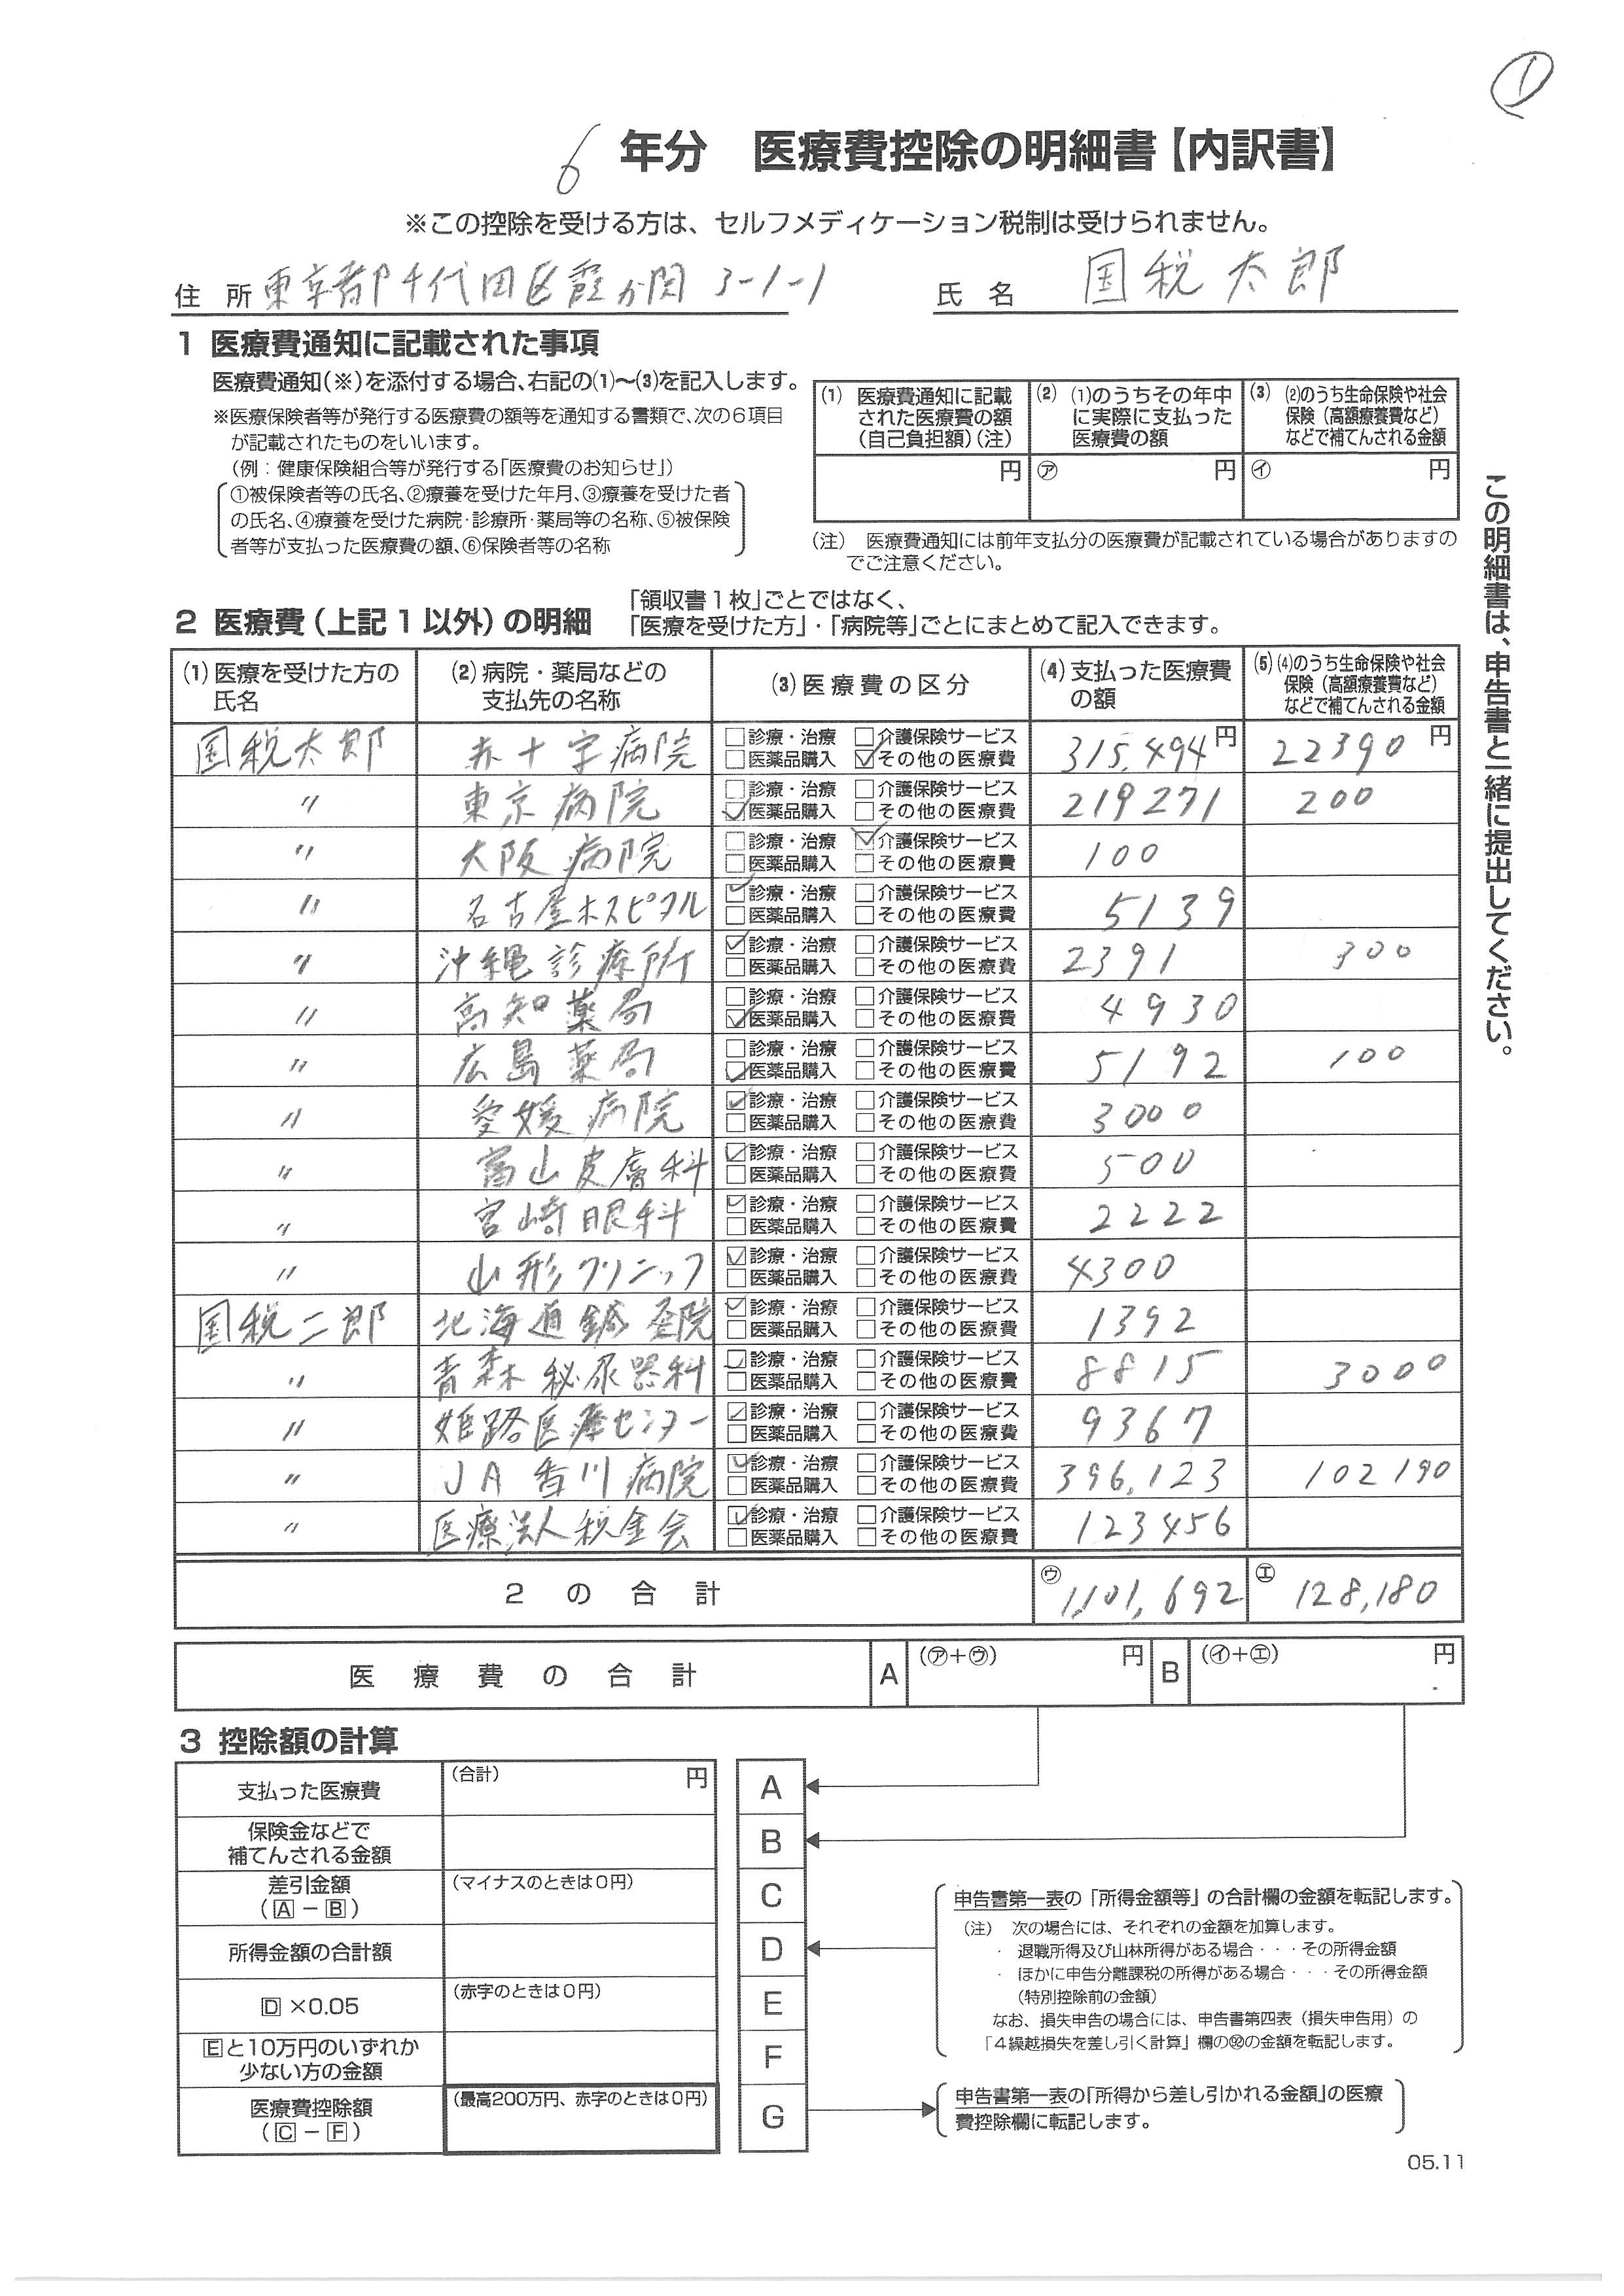 ①
6 年分 医療費控除の明細書【内訳書】
※この控除を受ける方は、セルフメディケーション税制は受けられません。
住所 東京都千代田区霞が関3-1-1 氏名 国税太郎
1 医療費通知に記載された事項
医療費通知(※)を添付する場合、右記の(1)~(3)を記入します。
※医療保険者等が発行する医療費の額等を通知する書類で、次の6項目
が記載されたものをいいます。
(例:健康保険組合等が発行する「医療費のお知らせ」)
①被保険者等の氏名、②療養を受けた年月、③療養を受けた者
の氏名、④療養を受けた病院・診療所・薬局等の名称、⑤被保険
者等が支払った医療費の額、⑥保険者等の名称
(1) 医療費通知に記載
された医療費の額
(自己負担額)(注)
円
(2) (1)のうちその年中
に実際に支払った
医療費の額
㋐ 円
(3) (2)のうち生命保険や社会
保険(高額療養費など)
などで補てんされる金額
㋑ 円
(注) 医療費通知には前年支払分の医療費が記載されている場合がありますの
でご注意ください。
2 医療費(上記1以外)の明細
「領収書1枚」ごとではなく、
「医療を受けた方」・「病院等」ごとにまとめて記入できます。
(1)医療を受けた方の
氏名
(2)病院・薬局などの
支払先の名称
(3)医療費の区分
(4)支払った医療費
の額
(5)(4)のうち生命保険や社会
保険(高額療養費など)
などで補てんされる金額
国税太郎 赤十字病院 □診療・治療 □介護保険サービス 315,494円 22390円
□医薬品購入 ☑その他の医療費
〃 東京病院 □診療・治療 □介護保険サービス 219271 200
☑医薬品購入 □その他の医療費
〃 大阪病院 □診療・治療 ☑介護保険サービス 100
□医薬品購入 □その他の医療費
〃 名古屋ホスピタル ☑診療・治療 □介護保険サービス 5139
□医薬品購入 □その他の医療費
〃 沖縄診療所 ☑診療・治療 □介護保険サービス 2391 300
□医薬品購入 □その他の医療費
〃 高知薬局 □診療・治療 □介護保険サービス 4930
☑医薬品購入 □その他の医療費
〃 広島薬局 □診療・治療 □介護保険サービス 5192 100
☑医薬品購入 □その他の医療費
〃 愛媛病院 ☑診療・治療 □介護保険サービス 3000
□医薬品購入 □その他の医療費
〃 富山皮膚科 ☑診療・治療 □介護保険サービス 500
□医薬品購入 □その他の医療費
〃 宮崎眼科 ☑診療・治療 □介護保険サービス 2222
□医薬品購入 □その他の医療費
〃 山形クリニック ☑診療・治療 □介護保険サービス 4300
□医薬品購入 □その他の医療費
国税二郎 北海道鍼灸院 ☑診療・治療 □介護保険サービス 1392
□医薬品購入 □その他の医療費
〃 青森秘尿器科 ☑診療・治療 □介護保険サービス 8815 3000
□医薬品購入 □その他の医療費
〃 姫路医療センター ☑診療・治療 □介護保険サービス 9367
□医薬品購入 □その他の医療費
〃 JA香川病院 ☑診療・治療 □介護保険サービス 396,123 102190
□医薬品購入 □その他の医療費
〃 医療法人税金会 ☑診療・治療 □介護保険サービス 123456
□医薬品購入 □その他の医療費
2の合計 ㋒ 1,101,692 ㋓ 128,180
医療費の合計 A (㋐+㋒) 円 B (㋑+㋓) 円
3 控除額の計算
支払った医療費 (合計) 円 A
保険金などで
補てんされる金額 B
差引金額
(A-B) (マイナスのときは0円) C
所得金額の合計額 D
D×0.05 (赤字のときは0円) E
Eと10万円のいずれか
少ない方の金額 F
医療費控除額
(C-F) (最高200万円、赤字のときは0円) G
申告書第一表の「所得金額等」の合計欄の金額を転記します。
(注) 次の場合には、それぞれの金額を加算します。
・ 退職所得及び山林所得がある場合・・・その所得金額
・ ほかに申告分離課税の所得がある場合・・・その所得金額
(特別控除前の金額)
なお、損失申告の場合には、申告書第四表(損失申告用)の
「4繰越損失を差し引く計算」欄の の金額を転記します。
申告書第一表の「所得から差し引かれる金額」の医療
費控除欄に転記します。
05.11
この明細書は、申告書と一緒に提出してください。